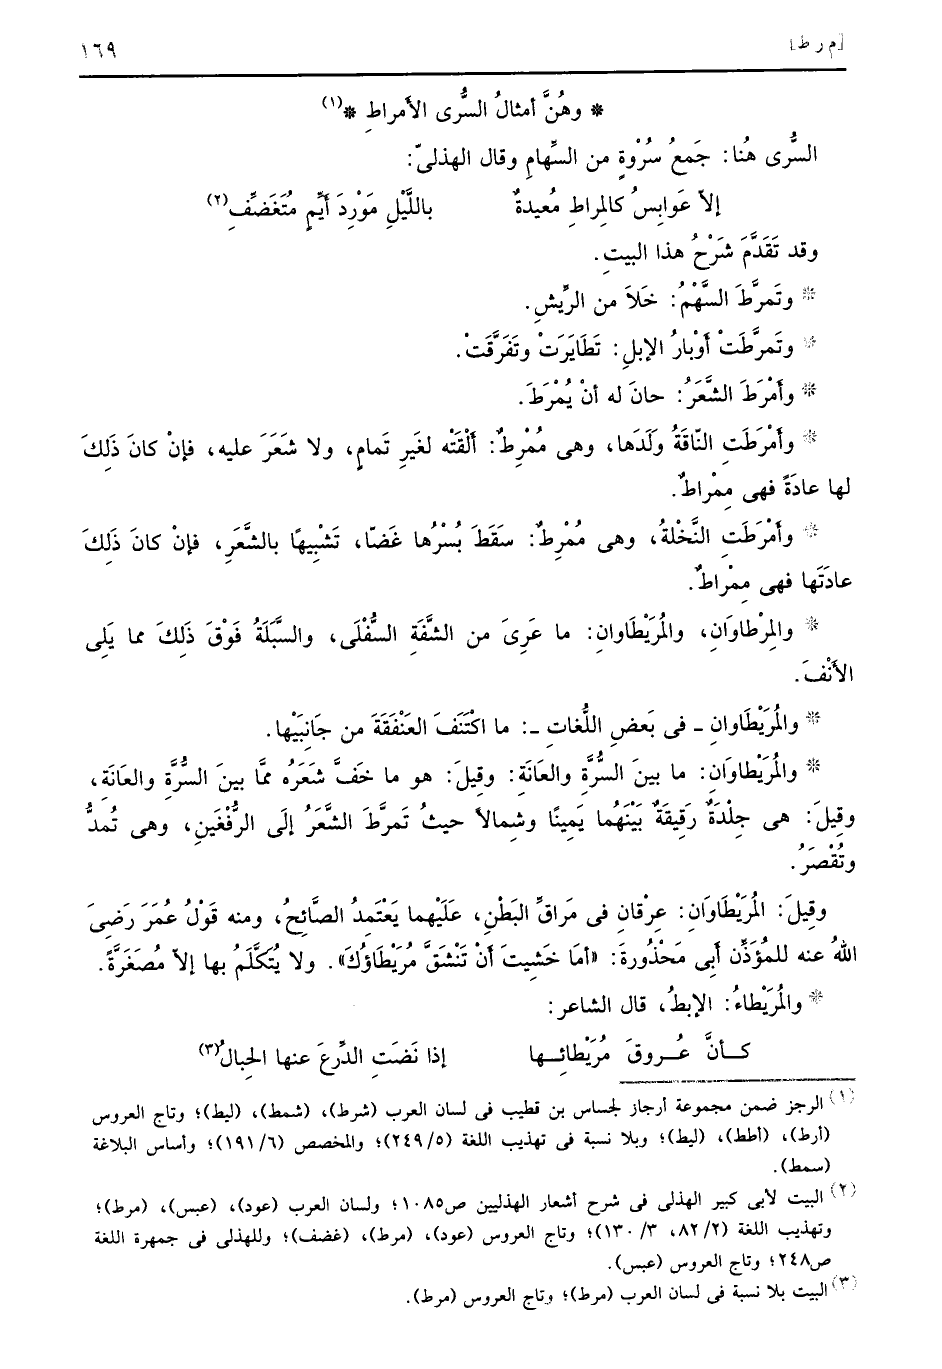 [م ر ط] ١٦٩
* وهُنَّ أمثالُ السُّرى الأَمراطِ *(١)
السُّرى هُنا: جَمعُ سُرْوِةٍ من السِّهامِ وقال الهذلىّ:
إلاّ عَوابِسُ كالمِراطِ مُعيدةٌ بالَّليْلِ مَوْرِدَ أَيِّمٍ مُتَغَضِّفِ(٢)
وقد تَقَدَّمَ شَرْحُ هذا البيتِ.
* وتَمرَّطَ السَّهْمُ: خَلاَ من الرِّيشِ.
* وتَمرَّطَتْ أوْبارُ الإبلِ: تَطَايَرَتْ وتَفَرَّقَتْ.
* وأَمْرَطَ الشَّعَرُ: حانَ له أنْ يُمْرَطَ.
* وأَمْرَطَتِ النّاقَةُ وَلَدَها، وهى مُمْرِطٌ: ألْقَتْه لغَيرِ تَمامٍ، ولا شَعَرَ عليه، فإنْ كانَ ذَلِكَ
لها عادَةً فهى مِمْراطٌ.
* وأَمْرَطَتِ النَّخْلةُ، وهى مُمْرِطٌ: سَقَطَ بُسْرُها غَضّا، تَشْبِيهًا بالشَّعَرِ، فإنْ كانَ ذَلِكَ
عادَتَها فهى مِمْراطٌ.
* والمِرْطاوَانِ، والمُرَيْطَاوانِ: ما عَرِىَ من الشَّفَةِ السُّفْلَى، والسَّبَلَةُ فَوْقَ ذَلِكَ مما يَلِى
الأَنْفَ.
* والمُرَيْطَاوانِ ـ فى بَعضِ اللُّغاتِ ـ: ما اكْتَنَفَ العَنْفَقَةَ من جَانِبَيْها.
* والمُرَيْطاوَانِ: ما بينَ السُّرَّةِ والعَانَةِ: وقيلَ: هو ما خَفَّ شَعَرُه ممَّا بينَ السُّرَّةِ والعَانَةِ،
وقِيلَ: هى جِلْدَةٌ رَقِيقَةٌ بَيْنَهُما يَمِينًا وشمالاً حيثُ تَمرَّطَ الشَّعَرُ إلَى الرُّفْغَينِ، وهى تُمدُّ
وتُقْصَرُ.
وقيلَ: المُرَيْطَاوَانِ: عِرْقانِ فى مَراقِّ البَطْنِ، عَلَيْهما يَعْتَمِدُ الصَّائحُ، ومنه قَوْلُ عُمَرَ رَضِىَ
اللهُ عنه للمُؤَذِّن أبى مَحْذُورةَ: «أمَا خَشِيتَ أَنْ تَنْشَقَّ مُرَيْطَاؤكَ». ولا يُتَكَلَّمُ بها إلاّ مُصَغَرَّةً.
* والمُرَيْطاءُ: الإبطُ، قال الشاعر:
كــأنَّ عُــروقَ مُرَيْطائــها إذا نَضَتِ الدِّرعَ عنها الحِبالُ(٣)
(١) الرجز ضمن مجموعة أرجاز لجساس بن قطيب فى لسان العرب (شرط)، (شمط)، (ليط)؛ وتاج العروس
(أرط)، (أطط)، (ليط)؛ وبلا نسبة فى تهذيب اللغة (٥/ ٢٤٩)؛ والمخصص (٦/ ١٩١)؛ وأساس البلاغة
(سمط).
(٢) البيت لأبى كبير الهذلى فى شرح أشعار الهذليين ص١٠٨٥؛ ولسان العرب (عود)، (عبس)، (مرط)؛
وتهذيب اللغة (٢/ ٨٢، ٣/ ١٣٠)؛ وتاج العروس (عود)، (مرط)، (غضف)؛ وللهذلى فى جمهرة اللغة
ص٢٤٨؛ وتاج العروس (عبس).
(٣) البيت بلا نسبة فى لسان العرب (مرط)؛ وتاج العروس (مرط).